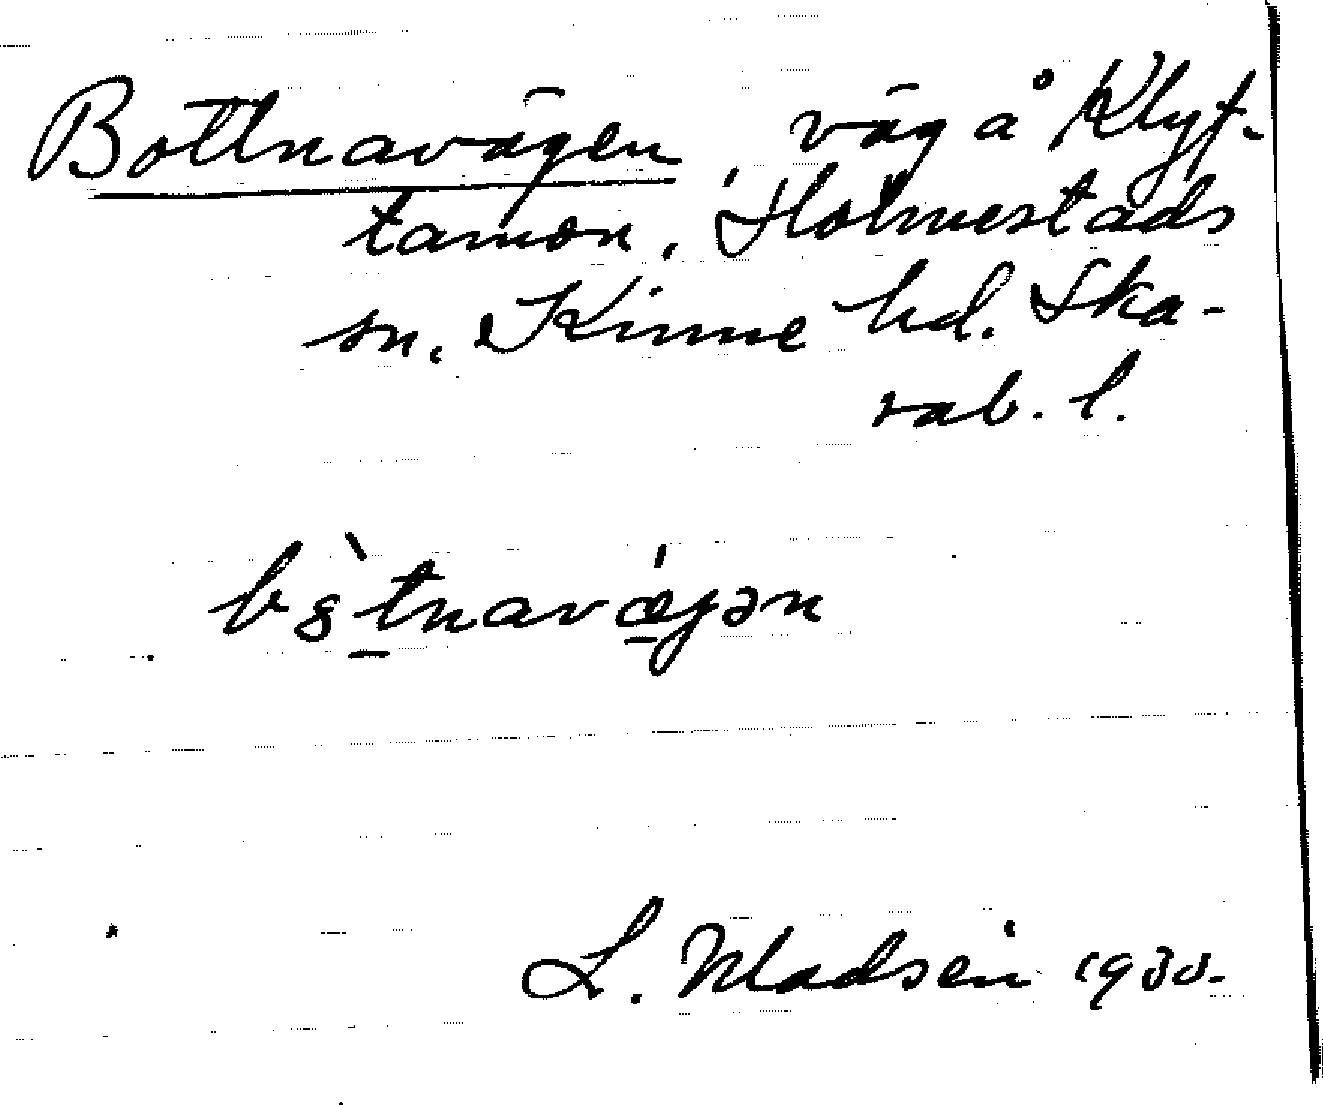 Bottnavägen, väg å Klyf-
tamon, Holmestads
sn, Kinne hd. Ska-
rab. l.
bꞩ̀tnavǽjən
L. Madsén 1930.